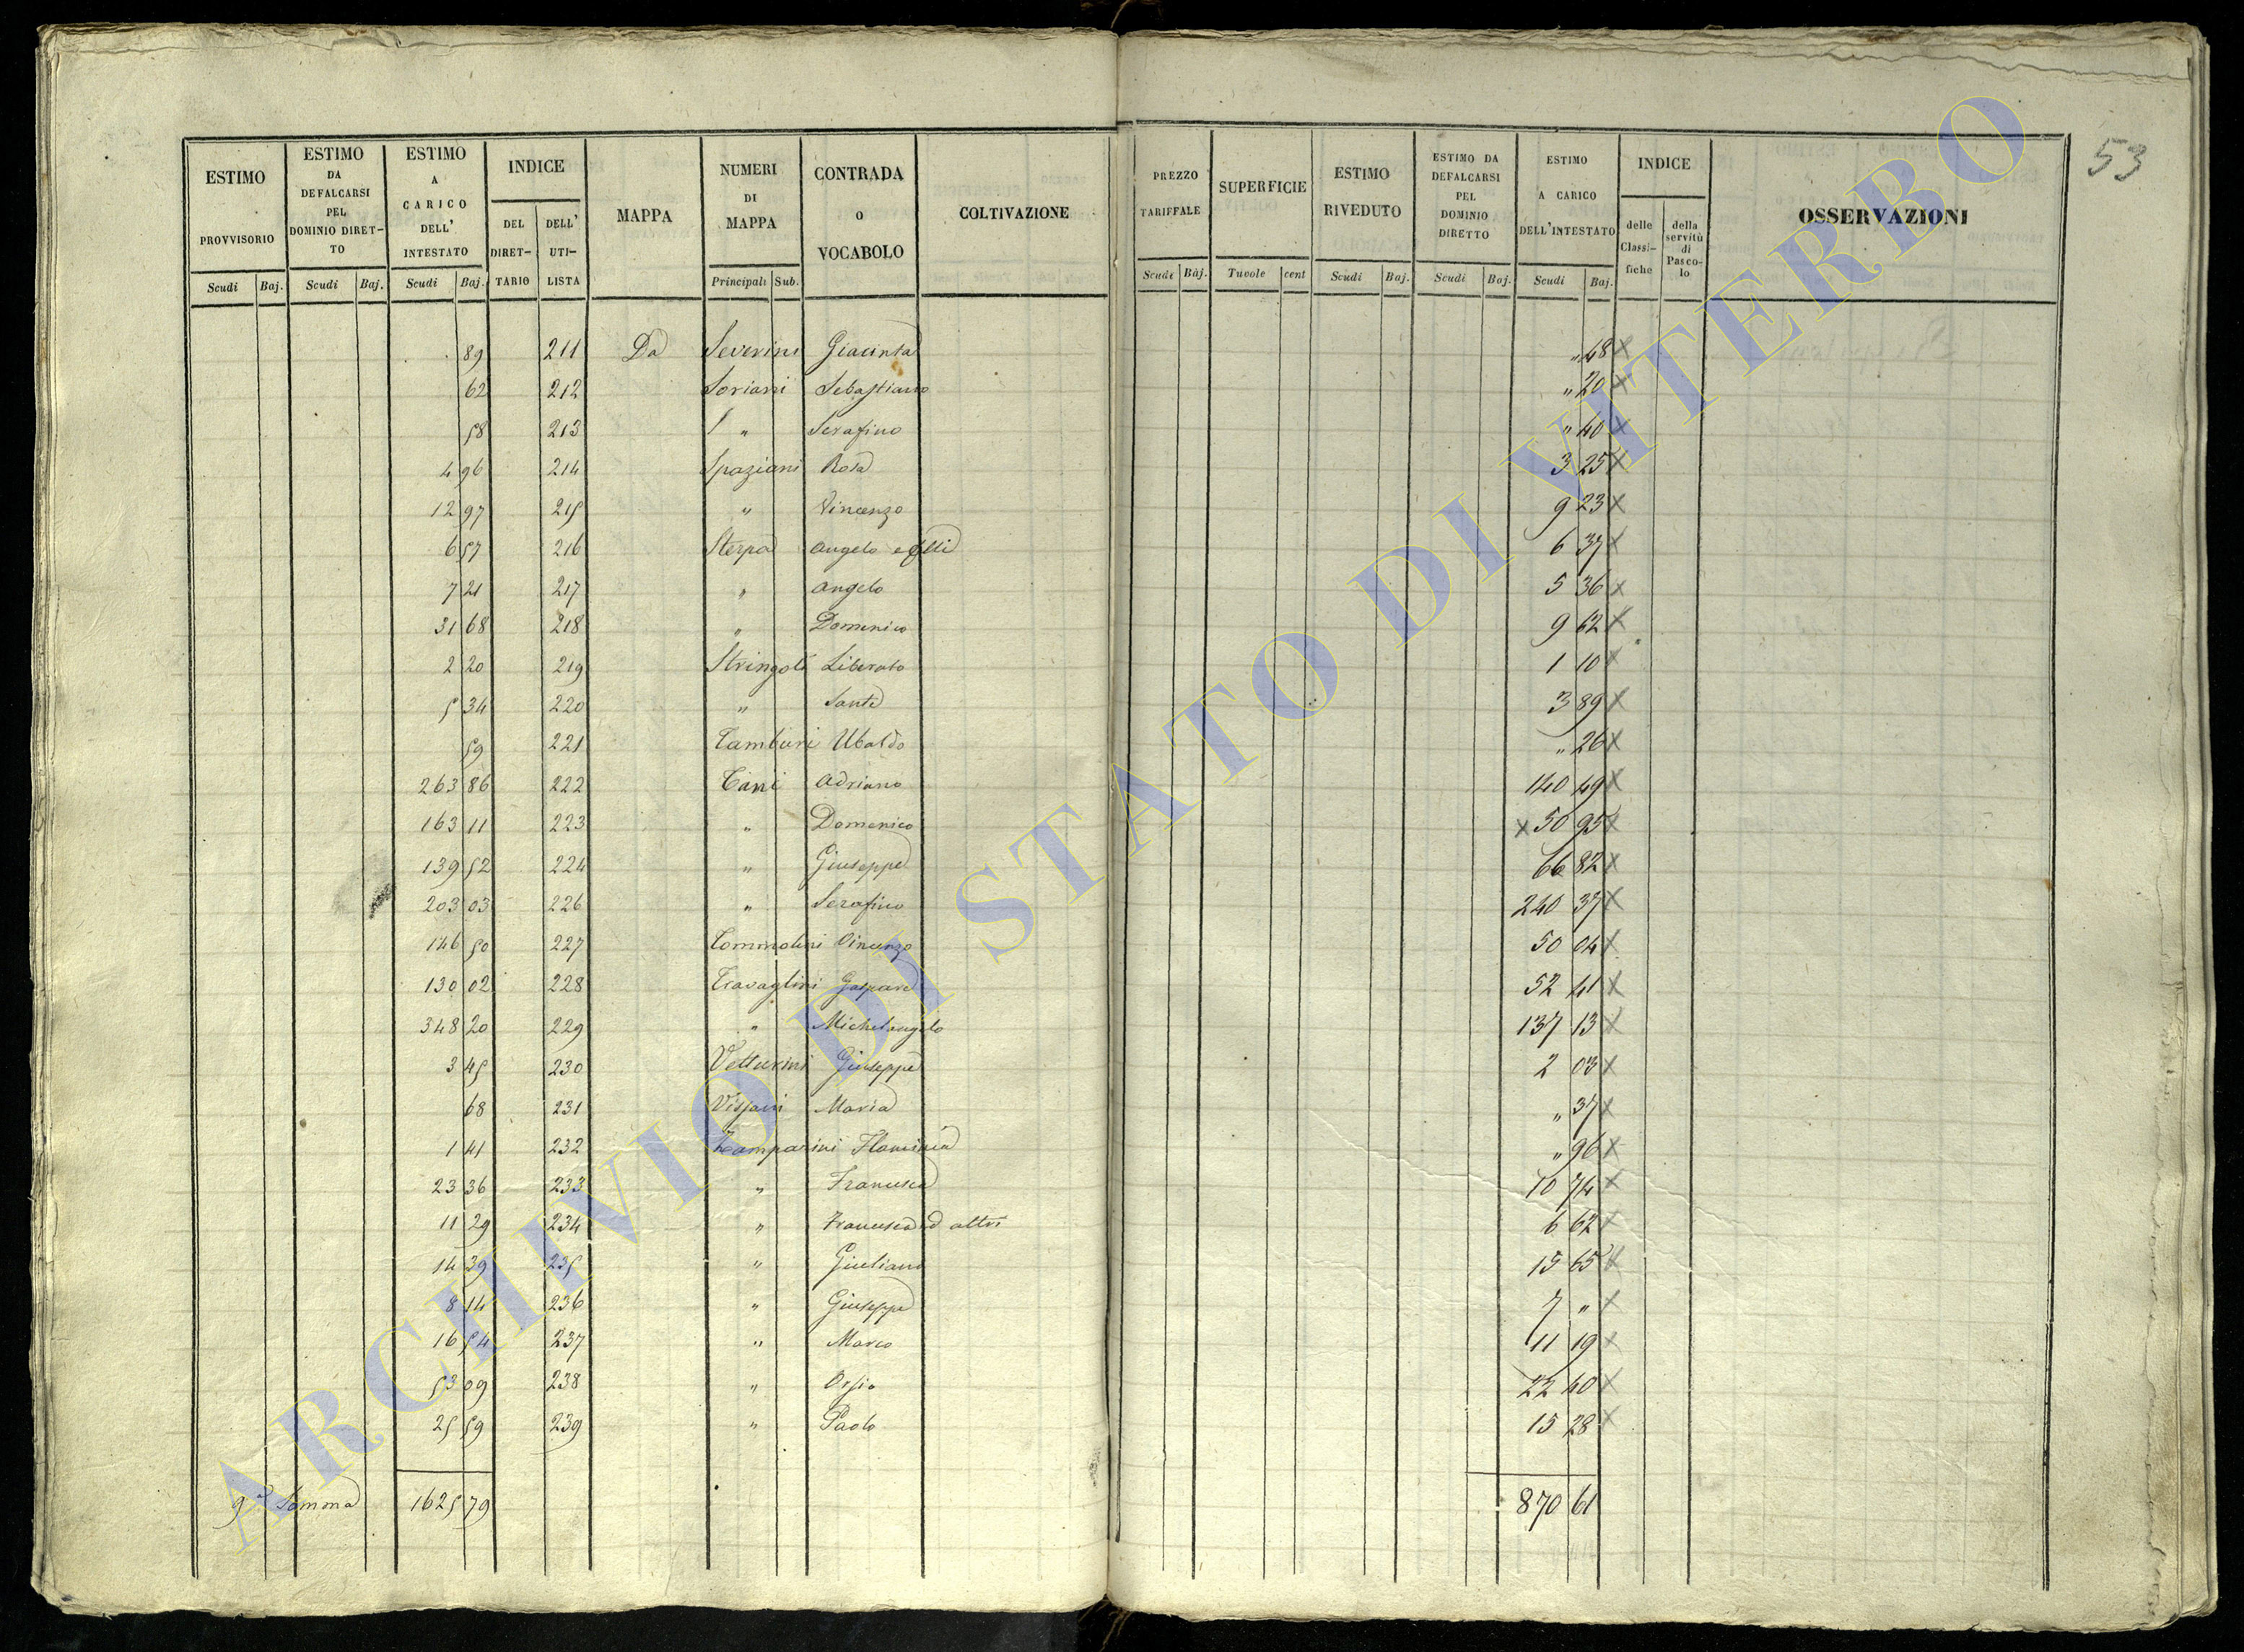 53
ESTIMO PROVVISORIO
ESTIMO DA DEFALCARSI PEL DOMINIO DIRET-TO
ESTIMO A CARICO DELL' INTESTATO
INDICE
DEL DIRET-TARIO
DELL' UTI-LISTA
MAPPA
NUMERI DI MAPPA
CONTRADA O VOCABOLO
COLTIVAZIONE
PREZZO TARIFFALE
SUPERFICIE
ESTIMO RIVEDUTO
ESTIMO DA DEFALCARSI PEL DOMINIO DIRETTO
ESTIMO A CARICO DELL'INTESTATO
INDICE
delle Classi-fiche
della servitù di Pasco-lo
OSSERVAZIONI
Scudi Baj. Scudi Baj. Scudi Baj. Principali Sub. Scudi Baj. Tavole cent Scudi Baj. Scudi Baj. Scudi Baj.
89 211 Da Severini Giacinta " 48 x
62 212 Soriani Sebastiano " 20 x
58 213 " Serafino " 40 x
4 96 214 Spaziani Rosa 3 25 x
12 97 215 " Vincenzo 9 23 x
6 57 216 Sterpa Angelo e flli 6 37 x
7 21 217 " Angelo 5 36 x
31 68 218 " Domenico 9 62 x
2 20 219 Stringoli Liberato 1 10 x
5 34 220 " Sante 3 89 x
59 221 Tamburi Ubaldo " 26 x
263 86 222 Tani Adriano 140 49 x
163 11 223 " Domenico x 50 95 x
139 52 224 " Giuseppe 66 82 x
203 03 226 " Serafino 240 37 x
146 50 227 Tommolini Vincenzo 50 04 x
130 02 228 Travaglini Gaspare 52 41 x
348 20 229 " Michelangelo 137 13 x
3 45 230 Vetturini Giuseppe 2 03 x
68 231 Vissani Maria " 37 x
1 41 232 Zamparini Flaminia " 96 x
23 36 233 " Francesca 10 74 x
11 29 234 " Francesca ed altri 6 62 x
14 39 235 " Giuliano 15 65 x
8 14 236 " Giuseppe 7 " x
16 54 237 " Marco 11 19 x
53 09 238 " Orsio 22 40 x
25 59 239 " Paolo 15 28 x
9a Somma 1625 79 870 61
ARCHIVIO DI STATO DI VITERBO